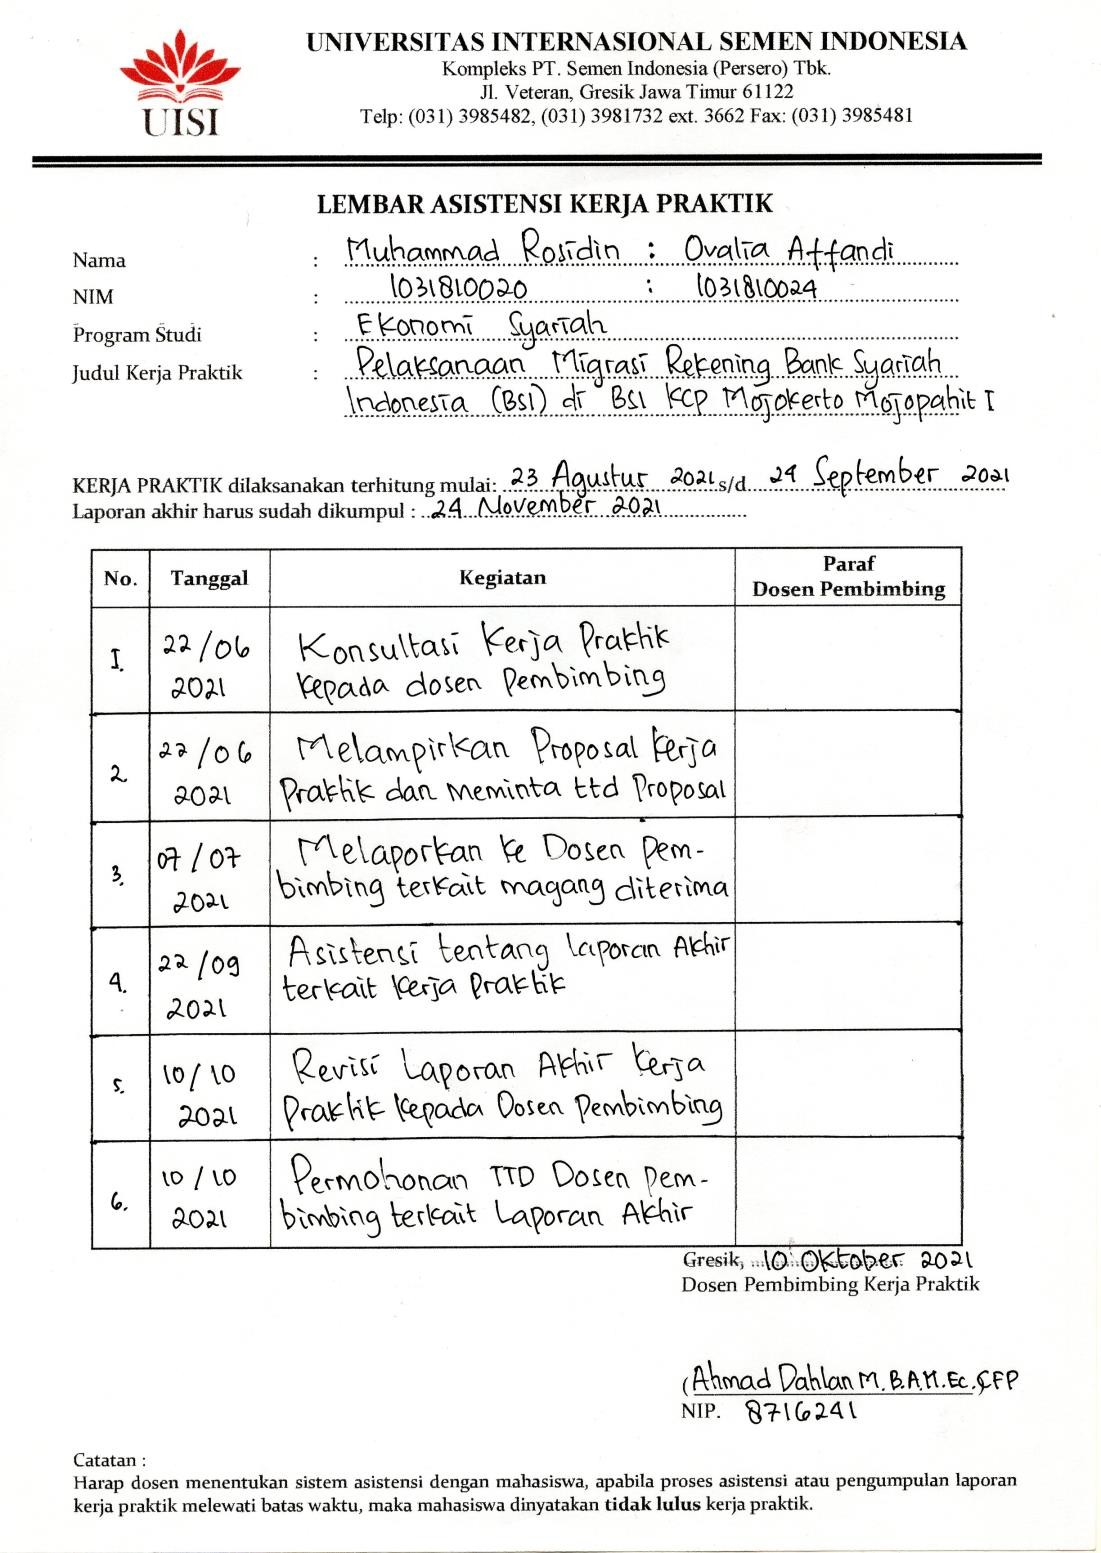 UNIVERSITAS INTERNASIONAL SEMEN INDONESIA
Kompleks PT. Semen Indonesia (Persero) Tbk.
Jl. Veteran, Gresik Jawa Timur 61122
Telp: (031) 3985482, (031) 3981732 ext. 3662 Fax: (031) 3985481
UISI
LEMBAR ASISTENSI KERJA PRAKTIK
Nama : Muhammad Rosidin : Ovalia Affandi
NIM : 1031810020 : 1031810024
Program Studi : Ekonomi Syariah
Judul Kerja Praktik : Pelaksanaan Migrasi Rekening Bank Syariah
Indonesia (BSI) di BSI KCP Mojokerto Mojopahit I
KERJA PRAKTIK dilaksanakan terhitung mulai: 23 Agustur 2021 s/d 24 September 2021
Laporan akhir harus sudah dikumpul : 24 November 2021
No. Tanggal Kegiatan Paraf
Dosen Pembimbing
1. 22/06 Konsultasi Kerja Praktik
2021 kepada dosen Pembimbing
2. 22/06 Melampirkan Proposal kerja
2021 Praktik dan meminta ttd Proposal
3. 07/07 Melaporkan ke Dosen pem-
2021 bimbing terkait magang diterima
4. 22/09 Asistensi tentang Laporan Akhir
2021 terkait kerja praktik
5. 10/10 Revisi Laporan Akhir kerja
2021 praktik kepada Dosen pembimbing
6. 10/10 Permohonan TTD Dosen pem-
2021 bimbing terkait Laporan Akhir
Gresik, 10 Oktober 2021
Dosen Pembimbing Kerja Praktik
(Ahmad Dahlan M.B.A.M.Ec.,CFP
NIP. 8716241
Catatan :
Harap dosen menentukan sistem asistensi dengan mahasiswa, apabila proses asistensi atau pengumpulan laporan
kerja praktik melewati batas waktu, maka mahasiswa dinyatakan tidak lulus kerja praktik.